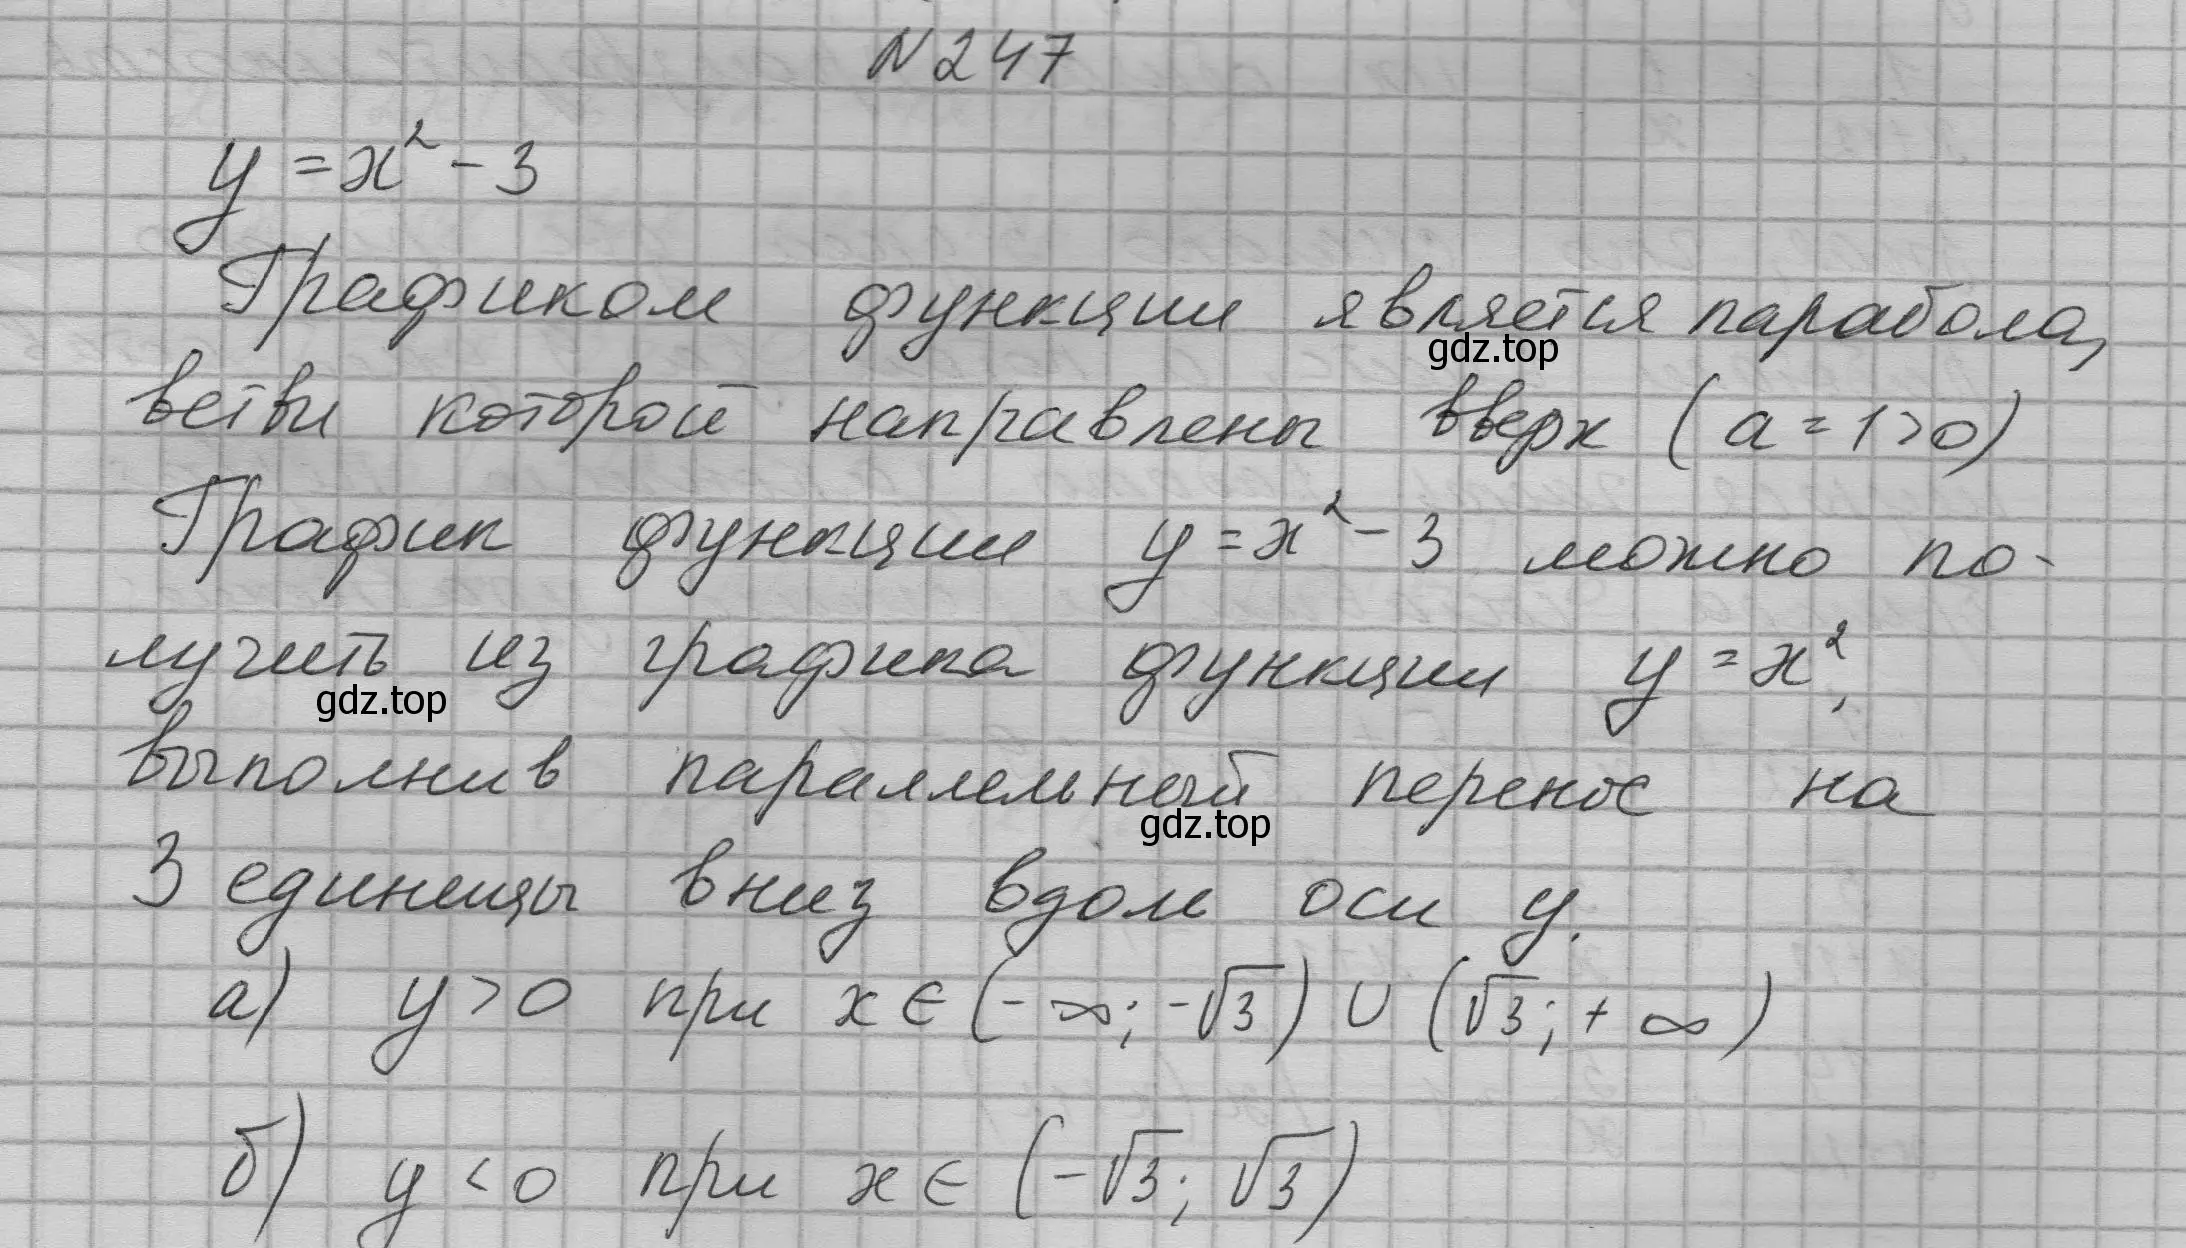 №247
y = x² - 3
Графиком функции является парабола,
gdz.top
ветви которой направлены вверх (a = 1 > 0)
График функции y = x² - 3 можно по-
лучить из графика функции y = x²,
gdz.top
выполнив параллельный перенос на
gdz.top
3 единицы вниз вдоль оси y.
а) y > 0 при x ∈ (-∞; -√3) ∪ (√3; +∞)
б) y < 0 при x ∈ (-√3; √3)